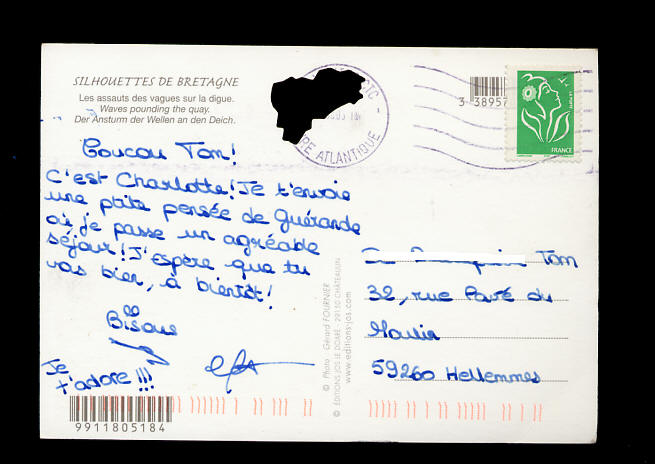 SILHOUETTES DE BRETAGNE
Les assauts des vagues sur la digue.
Waves pounding the quay.
Der Ansturm der Wellen an den Deich.
Coucou Tom!
C'est Charlotte! Je t'envoie
une ptite pensée de Guérande
où je passe un agréable
séjour! J'espère que tu
vas bien, à bientôt!
Bisous
Je
t'adore!!!
9911805184
© Photo : Gérard FOURNIER
© ÉDITIONS JOS LE DOARÉ - 29150 CHÂTEAULIN
www.editions-jos.com
CTC -
RE ATLANTIQUE
3 38957
LA POSTE
FRANCE
Tom
32, rue Pavé du
Moulin
59260 Hellemmes